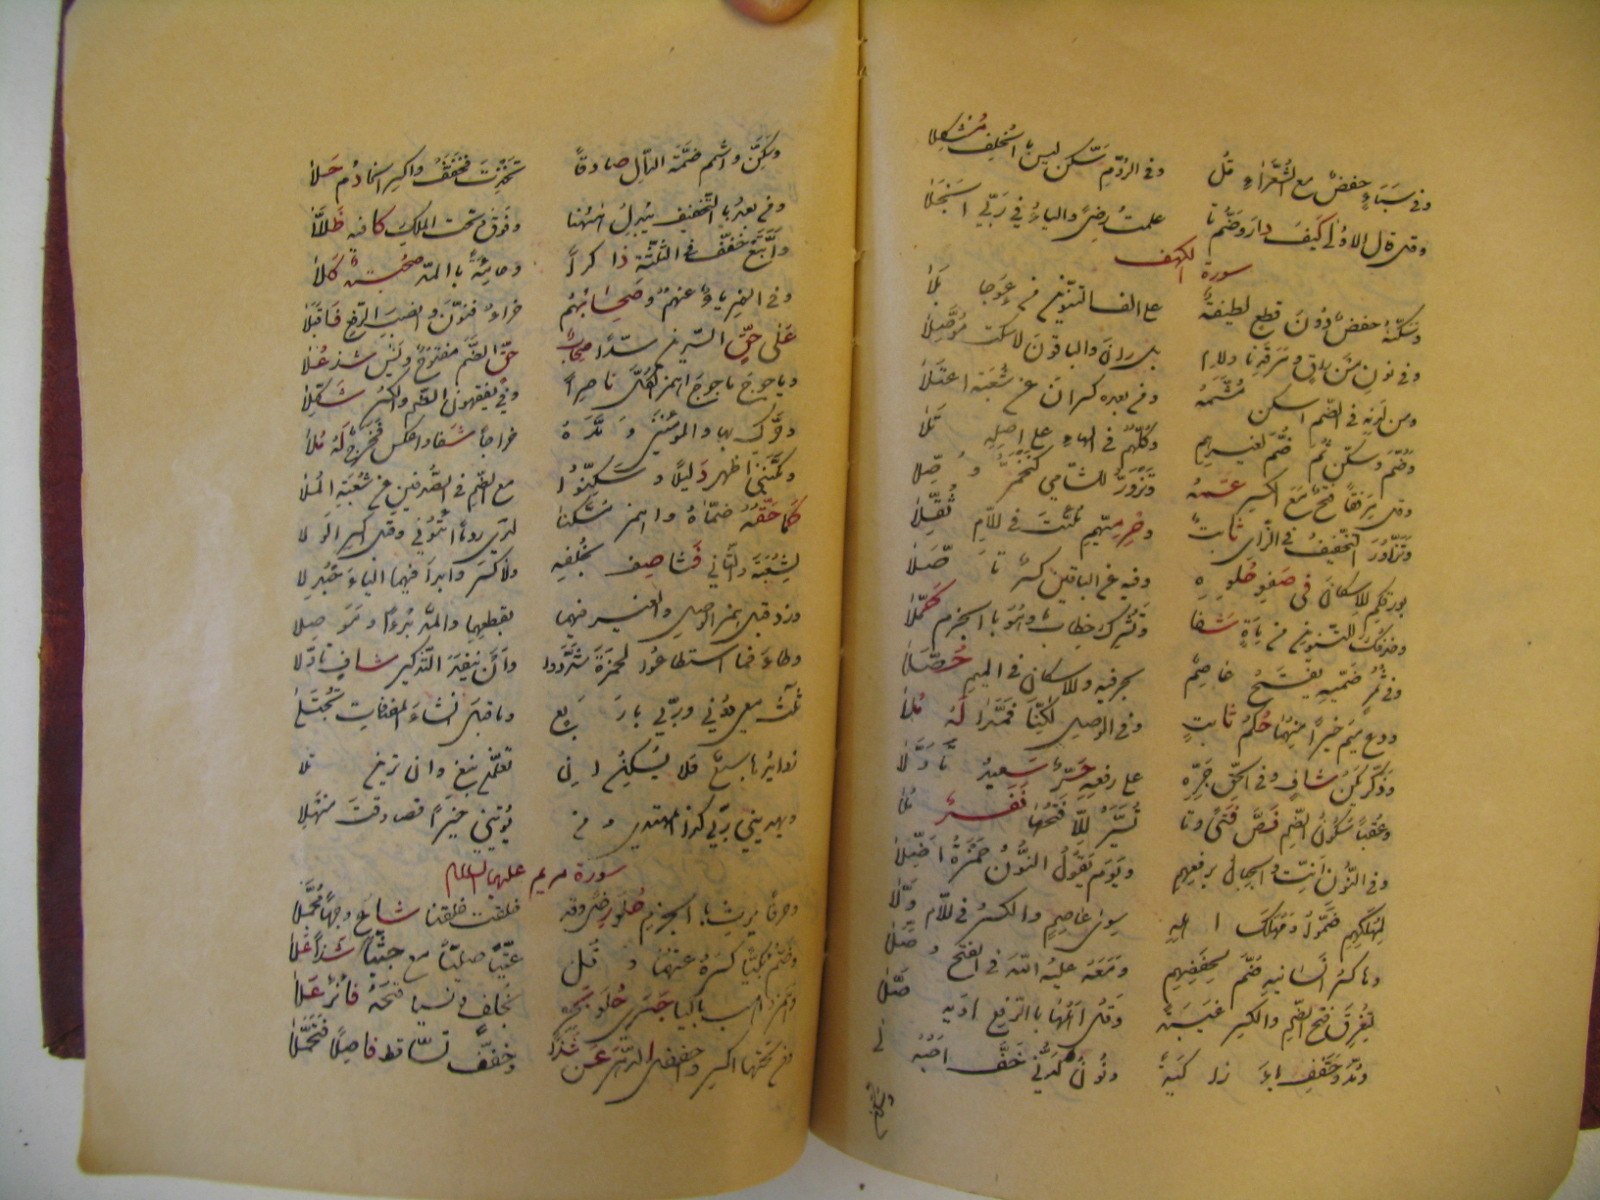 وفي سبأ حفص مع الشعراء قل وفي الروم سكن ليس الخلف مشكلا
وقل قال الاولى كيف دار وضم تا علمت رضى والياء في ربي انجلا
سورة الكهف
وسكتة حفص دون قطع لطيفة على الف التنوين في عوجا بلا
وفي نون من راق ومرقدنا ولام بل ران والباقون لا سكت موصلا
ومن لدنه في الضم اسكن مشمه ومن بعده كسران عن شعبة اعتلا
وضم وسكن ثم ضم لغيرهم وكلهم في الهاء على اصله تلا
وقل مرفقا فتح مع الكسر عمه وتزور للشامي كتحمر وصلا
وتزاور التخفيف في الزاي ثابت وحرميهم ملئت في اللام ثقلا
بورقكم الاسكان في صفو حلوه وفيه عن الباقين كسر تاصلا
وحذفك للتنوين من مائة شفا وتشرك خطاب وهو بالجزم كملا
وفي ثمر ضميه يفتح عاصم بحرفيه والاسكان في الميم حصلا
ودع ميم خيرا منهما حكم ثابت وفي الوصل لكنا فمد له ملا
وذكر تكن شاف وفي الحق جره على رفعه حبر سعيد تاولا
وعقبا سكون الضم نص فتى ويا نسير والى فتحها نفر ملا
وفي النون انث والجبال برفعهم ويوم يقول النون حمزة فضلا
لمهلكهم ضموا ومهلك اهله سوى عاصم والكسر في اللام عولا
وها كسر انسانيه ضم لحفصهم ومعه عليه الله في الفتح وصلا
لتغرق فتح الضم والكسر غيبة وقل اهلها بالرفع راويه فصلا
ومد وخفف ياء زاكية ونون لدني خف صاحبه الى
وسكن واشمم ضمة الدال صادقا تخذت فخفف واكسر الخاء دم حلا
ومن بعد بالتخفيف يبدل ههنا وفوق وتحت الملك كافيه ظللا
واتبع خفف في الثلثة ذاكرا وحامية بالمد صحبته كلا
وفي الهمز ياء عنهم وصحابهم جزاء فنون وانصب الرفع فاقبلا
على حق السدين سدا صحاب حق الضم مفتوح ويس شد علا
وياجوج ماجوج اهمز الكل ناصرا وفي يفقهون الضم والكسر شكلا
وحرك بها والمؤمنين ومده خراجا شفا واعكس فخرج له ملا
ومكنني اظهر دليلا وسكنوا مع الضم في الصدفين عن شعبة الملا
كما حقه ضماه واهمز مسكنا لدى ردما ائتوني وقبل اكسر الولا
لشعبة والثاني فشا صف بخلفه ولا كسر وابدا فيهما الياء مبدلا
وزد قبل همز الوصل والغير فيهما بقطعهما والمد بدءا وموصلا
وطاء فما اسطاعوا لحمزة شددوا وان ينفد التذكير شاف تاولا
ثلث معي دوني وربي باربع وما قبل ان شاء المضافات تجتلا
سورة مريم عليها السلام
وحرفا يرث بالجزم حلو رضى وقل خلقت خلقنا شاع وجها مجملا
وضم بكيا كسره عنهما وقل عتيا صليا مع جثيا شذا علا
وهمز اهب باليا جرى حلو بحره بخلف ونسيا فتحه فائز علا
ومن تحتها اكسر واخفض الدهر عن شذا وخف تساقط فاصلا فتحملا